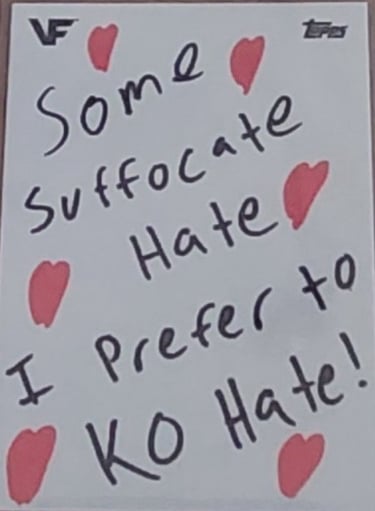 VF Topps
Some
Suffocate
Hate
I Prefer to
KO Hate!